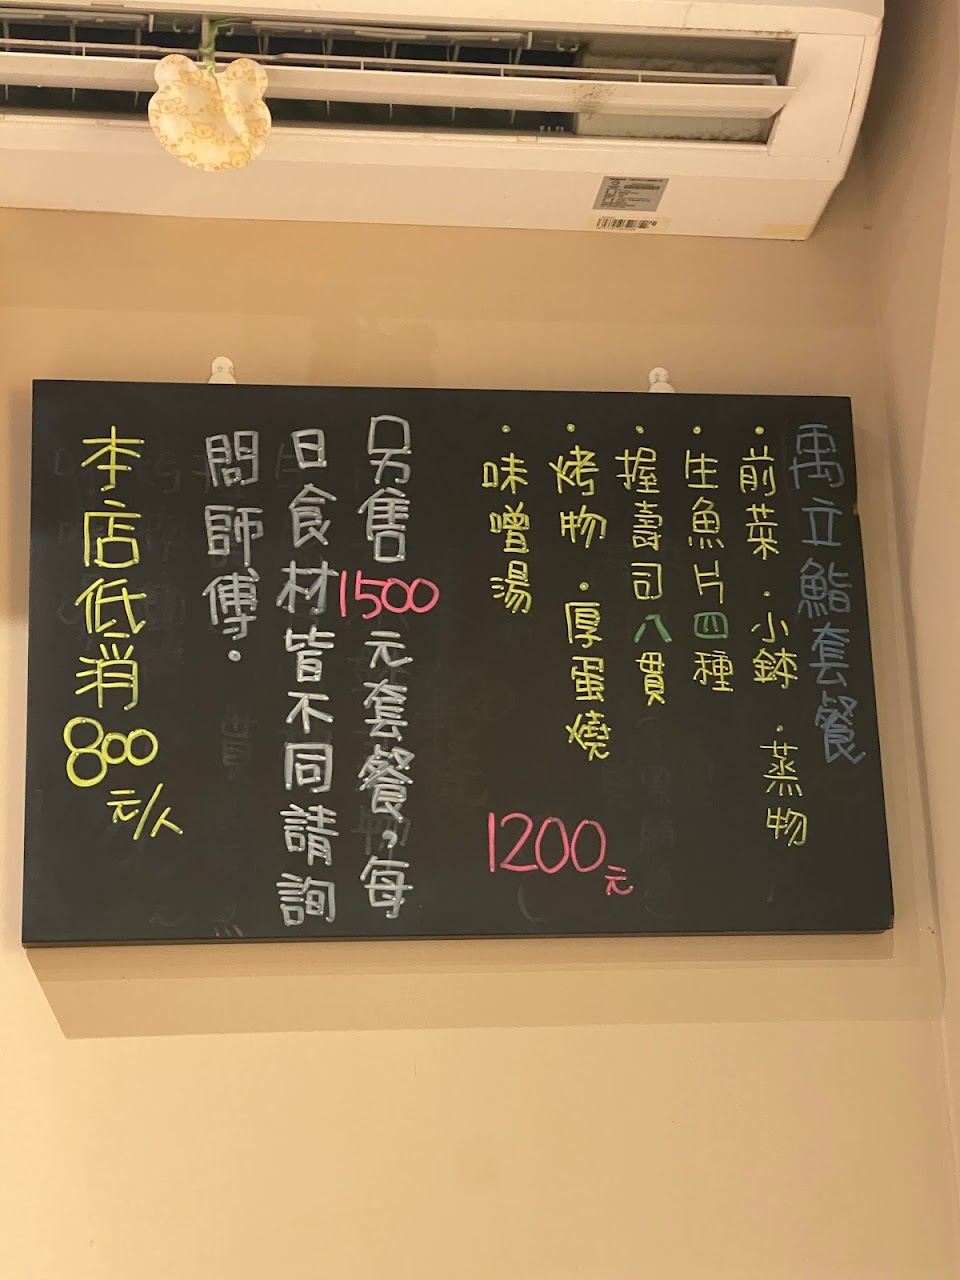 禹立鮨套餐
・前菜・小鉢・蒸物
・生魚片四種
・握壽司八貫
・烤物・厚蛋燒
・味噌湯
1200元
另售1500元套餐，每
日食材皆不同請詢
問師傅．
本店低消800元/人